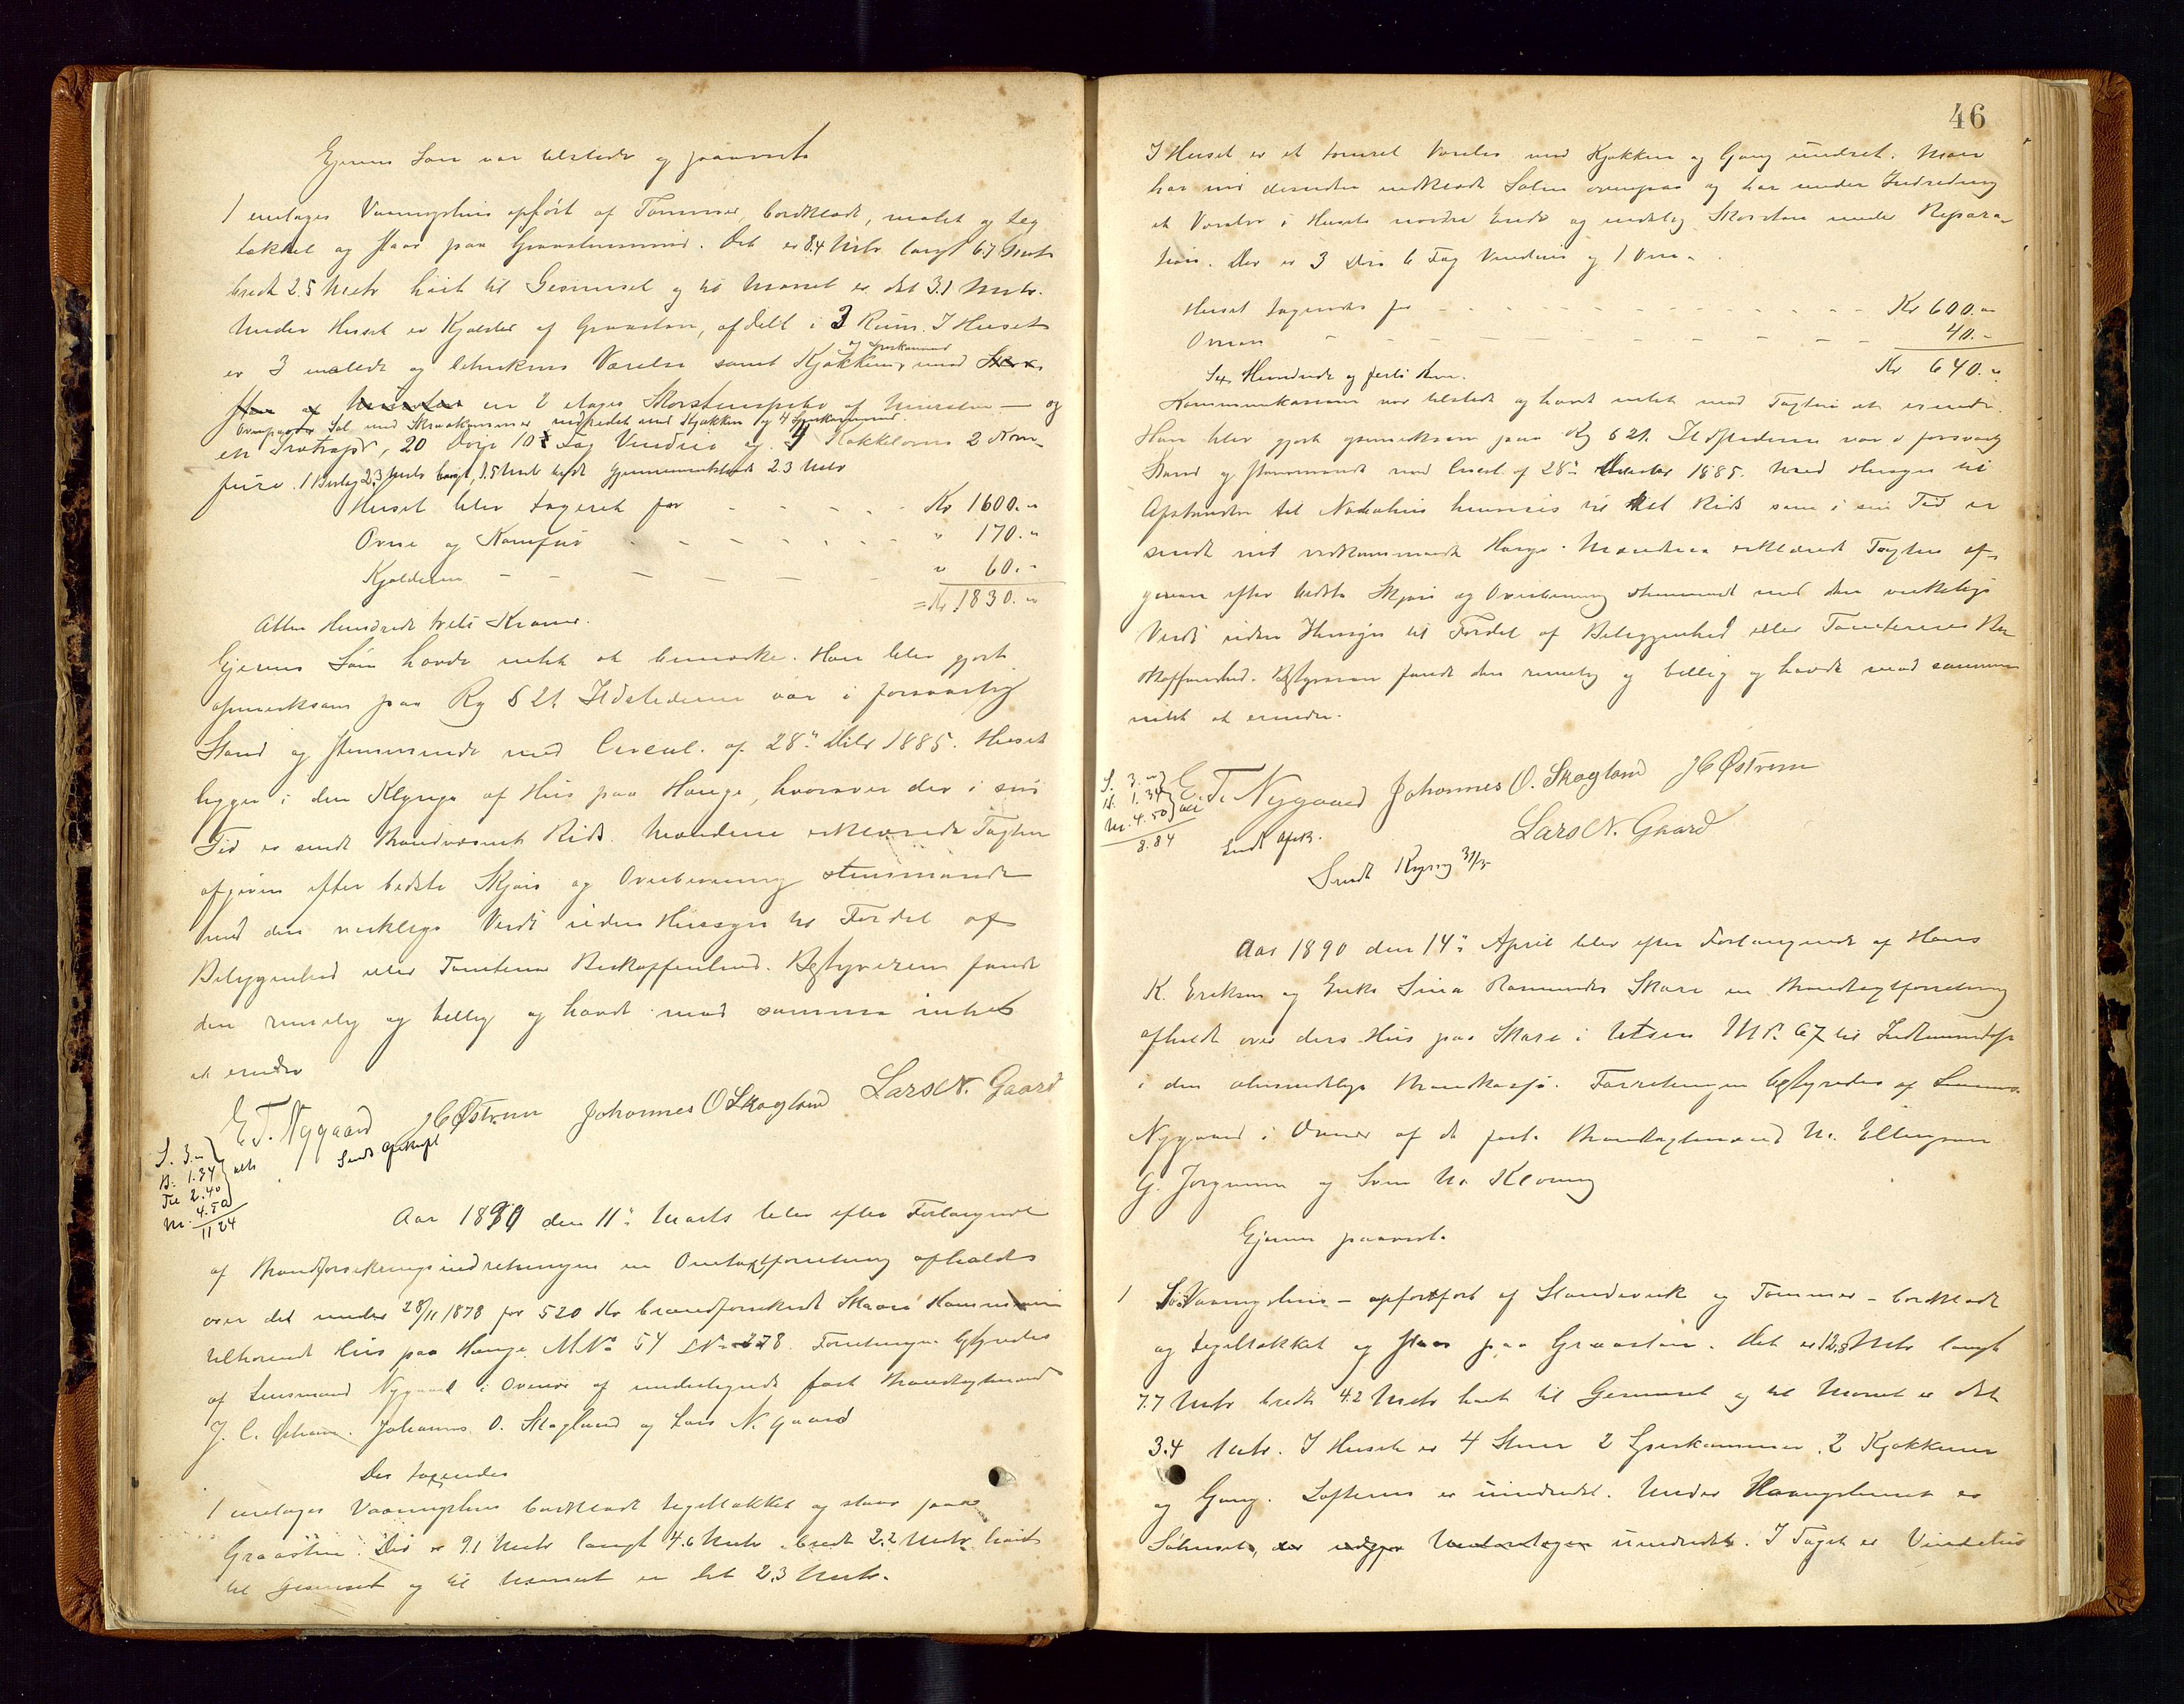 Ejerens Søn var tilstede og paaviste
1 enetages Vaaningshus opført af Tømmer, bordklædt, malet og teg
tækket og staar paa Graastensmuur. Det er 8.4 Metr langt 6.7 Metr
bredt 2.5 Metr høit til Gesimset og til Mønet er det 3.1 Metr.
Under Huset er Kjælder af Graasten, afdelt i 3 Rum. I Huset
og Spiskammer
er 3 malede og betrukne Værelser samt Kjøkken, med
en 2 etages Skorstenspibe af Mursten og
Ovenpaa er Sal med Skraakammer indredet med Kjøkken og 4 Spiskammer
en Trætrappe, 20 Døre 10 Fag Vinduer og 4 Kakkelovne 2 Kom-
furer. 1 Bislag 2.3 Metr langt, 1.5 Metr bredt Gjennemsnitshøide 2.3 Metr
Huset blev taxeret for - - - - - Kr 1600.„
Ovne og Komfur - - - - - - - „ 170.„
Kjælderen - - - - - - „ 60.„
= Kr 1830.„
Atten Hundrede treti Kroner.
Ejerens Søn havde intet at bemærke. Han blev gjort
opmærksom paa Rg § 21. Ildstederne var i forsvarlig
Stand og stemmende med Circul. af 28de Dcbr 1885. Huset
ligger i den Klynge af Hus paa Hauge, hvorover der i sin
Tid er sendt Brandvæsenet Rids. Mændene erklærede Taxten
afgiven efter bedste Skjøn og Overbevisning stemmende
med den virkelige Værdi uden Hensyn til Fordel af
Beliggenhed eller Tomtens Beskaffenhed. Bestyreren fandt
den rimelig og billig og havde mod samme intet
at erindre
E T. Nygaard JC Østrem Johannes O Skogland Lars N. Gaard
S. 3.„
B. 1.34
Til 2.40
M. 4.50
11 24
Sendt Afskrift
Aar 1890 den 11te Marts blev efter Forlangende
af Brandforsikringsindretningen en Omtaxtforretning afholdt
over det under 28/11 1878 for 520 Kr brandforsikrede Skaare Kommune
tilhørende Hus paa Hauge M.No 54 LN 278. Forretningen bestyredes
af Lensmand Nygaard i Overvær af undertegnede faste Brandtaxtmænd
J. C. Østrem, Johannes O. Skogland og Lars N. Gaard
Der taxeredes
1 enetages Vaaningshus bordklædt tegeltækket og staar paa
Graasten. Det er 9.1 Metr langt 4.6 Metr bredt 2.2 Metr høit
til Gesimset og til Mønet er det 2.3 Metr.
46
I Huset er et tømret Værelse med Kjøkken og Gang indredet. Man
har nu desuden indklædt Salen ovenpaa og har under Indredning
et Værelse i Husets nordre Ende og endelig Skorsten under Repara-
tion. Der er 3 Døre 6 Fag Vinduer og 1 Ovn.
Huset taxeredes for - - - - - - - - Kr 600.„
Ovnen - - - - - - - - - 40.-
Sex Hundrede og firti Kr. Kr 640.„
Kommunekasserer var tilstede og havde intet mod Taxten at erindre.
Han blev gjort opmerksom paa Rg § 21. Ildstederne var i forsvarlig
Stand og stemmende med Circul af 28de Decbr 1885. Med Hensyn til
Afstanden til Nabohus henvises til det Rids som i sin Tid er
sendt vedkommende Hauge. Mændene erklærede Taxten af-
given efter bedste Skjøn og Overbevisning stemmende med den virkelige
Værdi uden Hensyn til Fordel af Beliggenhed eller Tomternes Be-
skaffenhed. Bestyreren fandt den rimelig og billig og havde mod samme
intet at erindre.
S. 3.„
B. 1.34
M. 4.50
8.84
E. T. Nygaard Johannes O. Skogland JC Østrem
Lars N. Gaard
Sendt Afskr.
Sendt Regning 31/3
Aar 1890 den 14de April blev efter Forlangende af Hans
K. Eriksen og Enke Sina Rasmusdtr Skare en Brandtaxtforretning
afholdt over deres Hus paa Skare i MNr. 67 til Indlemmelse
i den almindelige Brandkasse. Forretningen bestyredes af Lensm.
Nygaard i Overvær af de faste Brandtaxtmænd M. Ellingsen
G. Jørgensen og Sven M. Kløvning
Ejeren paaviste
1 Vaaningshus - opført af Standværk og Tømmer - bordklædt
og tegeltækket og staar paa Graasten. Det er 12.8 Metr langt
7.7 Metr bredt 4.2 Metr høit til Gesimset og til Mønet er det
3.4 Metr. I Huset er 4 Stuer 2 Spiskammer, 2 Kjøkkener
og Gang. Lofterne er uindredet. Under Vaaningshuset er
Søhuset, der udgjør Underetagen uindredet. I Taget er Vindehus